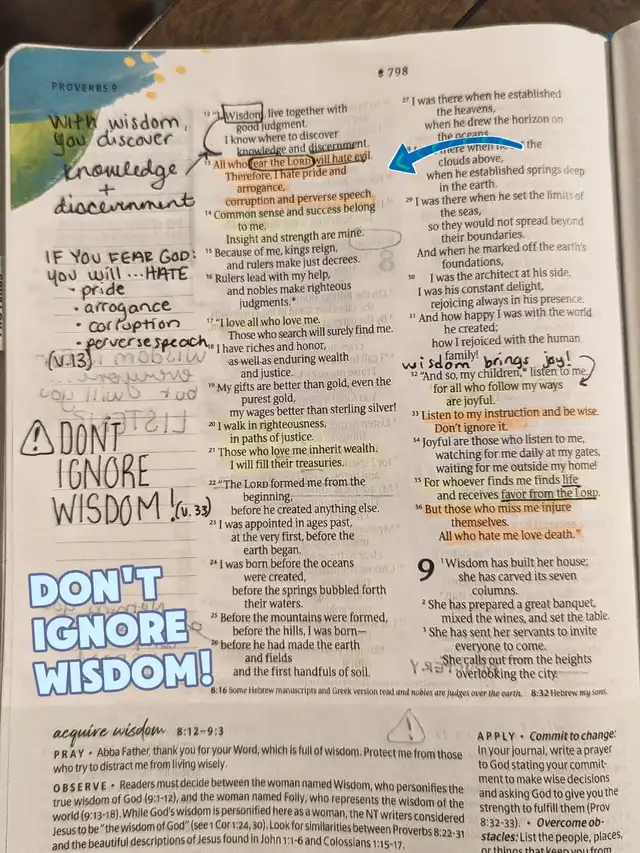 PROVERBS 9
798
With wisdom,
you discover
knowledge
+
discernment
IF YOU FEAR GOD:
you will ... HATE
• pride
• arrogance
• corruption
• perverse speach
(v.13)
DONT
IGNORE
WISDOM! (v.33)
DON'T
IGNORE
WISDOM!
12 "I, Wisdom, live together with
good judgment.
I know where to discover
knowledge and discernment.
13 All who fear the LORD will hate evil.
Therefore, I hate pride and
arrogance,
corruption and perverse speech.
14 Common sense and success belong
to me.
Insight and strength are mine.
15 Because of me, kings reign,
and rulers make just decrees.
16 Rulers lead with my help,
and nobles make righteous
judgments.*
17 "I love all who love me.
Those who search will surely find me.
18 I have riches and honor,
as well as enduring wealth
and justice.
19 My gifts are better than gold, even the
purest gold,
my wages better than sterling silver!
20 I walk in righteousness,
in paths of justice.
21 Those who love me inherit wealth.
I will fill their treasuries.
22 "The LORD formed me from the
beginning,
before he created anything else.
23 I was appointed in ages past,
at the very first, before the
earth began.
24 I was born before the oceans
were created,
before the springs bubbled forth
their waters.
25 Before the mountains were formed,
before the hills, I was born—
26 before he had made the earth
and fields
and the first handfuls of soil.
27 I was there when he established
the heavens,
when he drew the horizon on
the oceans.
there when he the
clouds above,
when he established springs deep
in the earth.
29 I was there when he set the limits of
the seas,
so they would not spread beyond
their boundaries.
And when he marked off the earth's
foundations,
30 I was the architect at his side.
I was his constant delight,
rejoicing always in his presence.
31 And how happy I was with the world
he created;
how I rejoiced with the human
family!
wisdom brings joy!
32 "And so, my children,* listen to me,
for all who follow my ways
are joyful.
33 Listen to my instruction and be wise.
Don't ignore it.
34 Joyful are those who listen to me,
watching for me daily at my gates,
waiting for me outside my home!
35 For whoever finds me finds life
and receives favor from the LORD.
36 But those who miss me injure
themselves.
All who hate me love death."
9 1 Wisdom has built her house;
she has carved its seven
columns.
2 She has prepared a great banquet,
mixed the wines, and set the table.
3 She has sent her servants to invite
everyone to come.
She calls out from the heights
overlooking the city.
8:16 Some Hebrew manuscripts and Greek version read and nobles are judges over the earth. 8:32 Hebrew my sons.
acquire wisdom 8:12–9:3
PRAY • Abba Father, thank you for your Word, which is full of wisdom. Protect me from those
who try to distract me from living wisely.
OBSERVE • Readers must decide between the woman named Wisdom, who personifies the
true wisdom of God (9:1-12), and the woman named Folly, who represents the wisdom of the
world (9:13-18). While God's wisdom is personified here as a woman, the NT writers considered
Jesus to be "the wisdom of God" (see 1 Cor 1:24, 30). Look for similarities between Proverbs 8:22-31
and the beautiful descriptions of Jesus found in John 1:1-6 and Colossians 1:15-17.
APPLY • Commit to change:
In your journal, write a prayer
to God stating your commit-
ment to make wise decisions
and asking God to give you the
strength to fulfill them (Prov
8:32-33). • Overcome ob-
stacles: List the people, places,
or things that keep you from